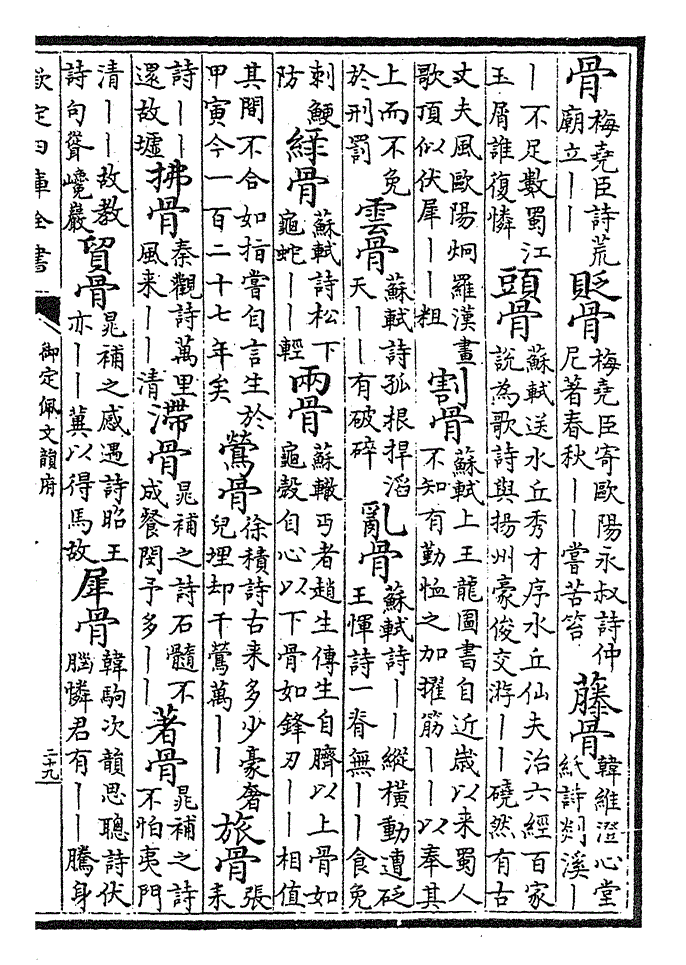 骨 梅堯臣詩荒廟立丨丨 貶骨 梅堯臣寄歐陽永叔詩仲尼著春秋丨丨嘗苦笞 藤骨 韓維澄心堂紙詩剡溪丨
丨不足數蜀江玉屑誰復憐 頭骨 蘇軾送水丘秀才序水丘仙夫治六經百家說為歌詩與揚州豪俊交游丨丨磽然有古
丈夫風歐陽炯羅漢畫歌頂似伏犀丨丨粗 割骨 蘇軾上王龍圖書自近歲以来蜀人不知有勤恤之加擢筋丨丨以奉其
上而不免於刑罰 雲骨 蘇軾詩孤根捍滔天丨丨有破碎 亂骨 蘇軾詩丨丨縱橫動遭砭王惲詩一脊無丨丨食免
刺鯁防 綠骨 蘇軾詩松下龜蛇丨丨輕 兩骨 蘇轍丐者趙生傳生自臍以上骨如龜殼自心以下骨如鋒刃丨丨相值
其間不合如指嘗自言生於甲寅今一百二十七年矣 鶯骨 徐積詩古来多少豪奢兒埋却千鶯萬丨丨 旅骨 張耒
詩丨丨還故墟 拂骨 秦觀詩萬里風来丨丨清 滯骨 晁補之詩石髓不成餐閔予多丨丨 著骨 晁補之詩不怕夷門
清丨丨故教詩句聳巉巖 貿骨 晁補之感遇詩昭王亦丨丨冀以得馬故 犀骨 韓駒次韻思聰詩伏腦憐君有丨丨騰身
欽定四庫全書 御定佩文韻府 二十九